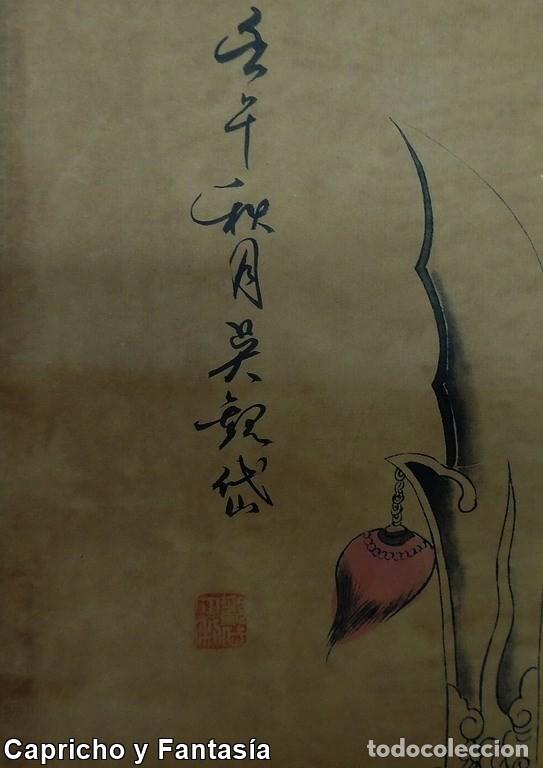 壬午秋月吴觀岱
Capricho y Fantasía
todocoleccion